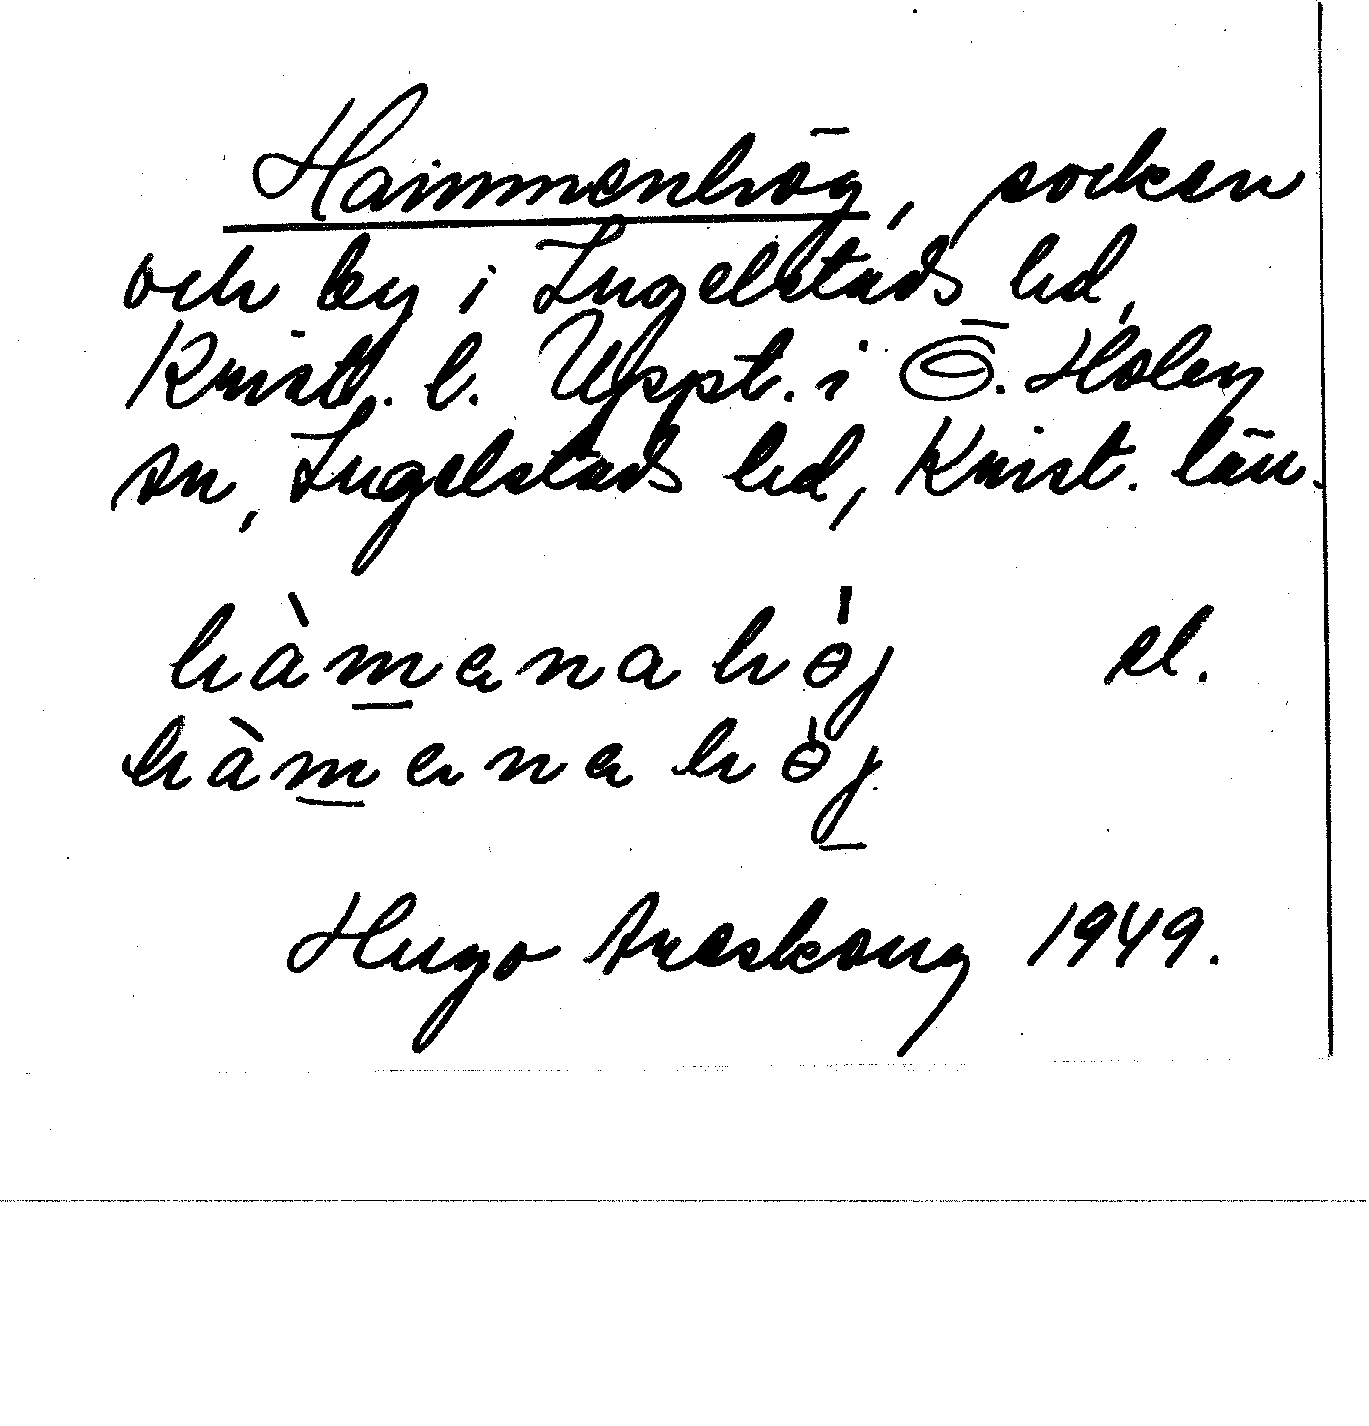 Hammenhög, socken
och by i Ingelstads hd,
Krist. l. Uppt. i Ö. Hoby
sn, Ingelstads hd, Krist. län.
hàmenahöj el.
hàmenehöj
Hugo Areskoug 1949.